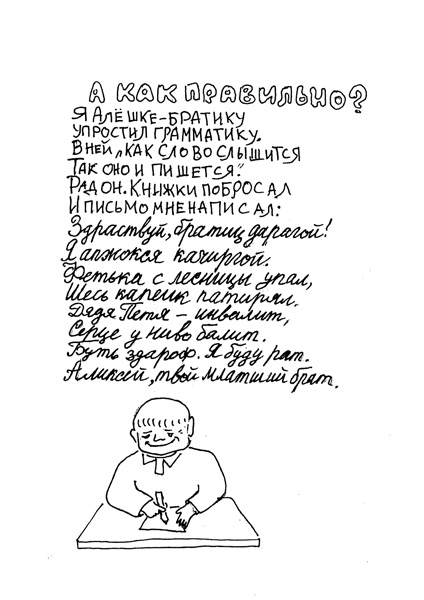 А КАК ПРАВИЛЬНО?
Я АЛЁШКЕ-БРАТИКУ
УПРОСТИЛ ГРАММАТИКУ.
В НЕЙ „КАК СЛОВО СЛЫШИТСЯ
ТАК ОНО И ПИШЕТСЯ."
РАД ОН. КНИЖКИ ПОБРОСАЛ
И ПИСЬМО МНЕ НАПИСАЛ:
Здраствуй, братиц дарагой!
Я апжокся качиргой.
Фетька с лесницы упал,
Шесь капеик патирял.
Дядя Петя – инвалит,
Серце у ниво балит.
Буть здароф. Я буду рат.
Аликсей, твой млатший брат.